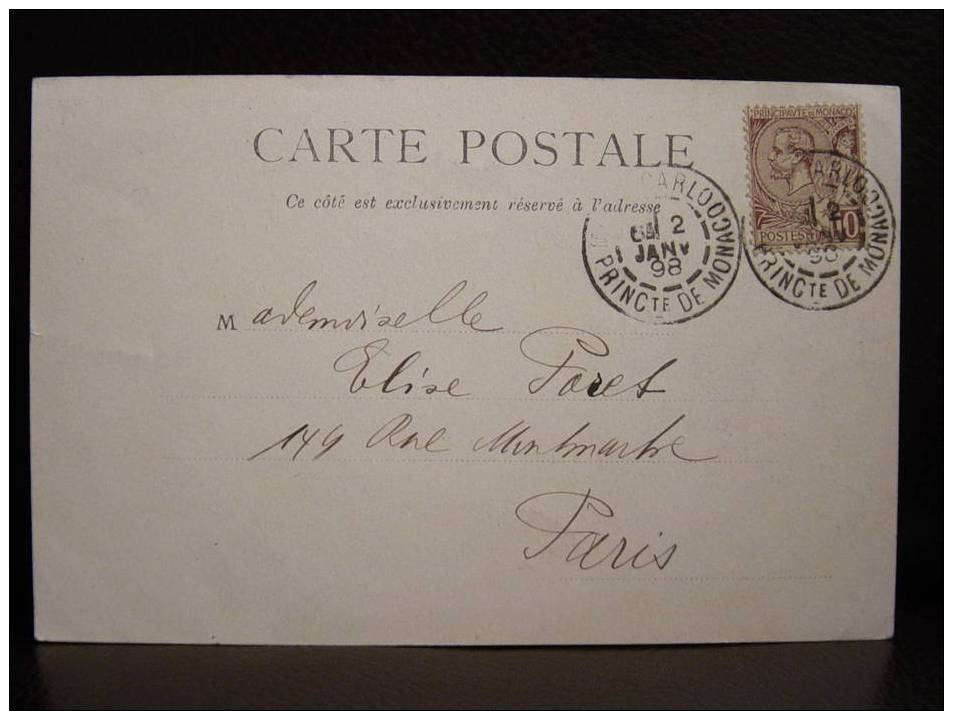 CARTE POSTALE
Ce côté est exclusivement réservé à l'adresse
PRINCIPAUTE DE MONACO
POSTES
10
CARLO
2
JANV
98
PRINCTE DE MONACO
CARLO
2
98
PRINCTE DE MONACO
Mademoiselle
Elise Foret
149 Rue Montmartre
Paris